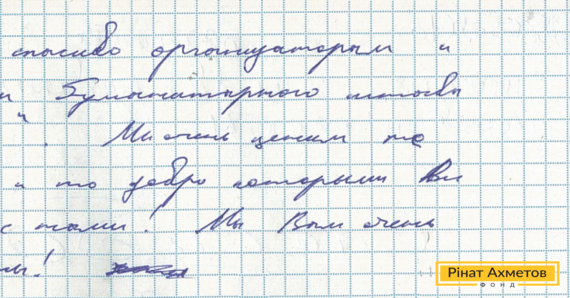 спасибо организаторам и
и Гуманитарного штаба
и . Мы очень ценим то
и то добро которым Вы
с нами! Мы Вам очень
ны!
Рінат Ахметов
ФОНД